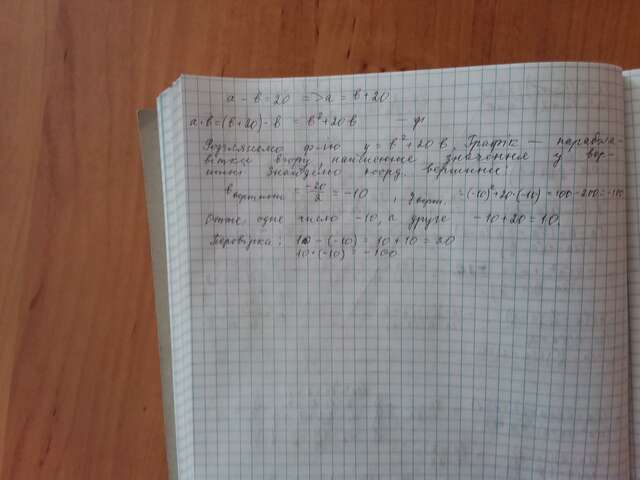 a - b = 20 => a = b + 20
a·b = (b + 20)·b = b² + 20b - ф
Розглянемо ф-ію y = b² + 20b. Графік — парабола
вітки вгору, найменше значення у вер-
шині знайдемо коорд. вершини:
b вершини = -20/2 = -10, y верш. = (-10)² + 20·(-10) = 100 - 200 = -100
Отже одне число -10, а друге -10 + 20 = 10.
Перевірка: 10 - (-10) = 10 + 10 = 20
10·(-10) = -100